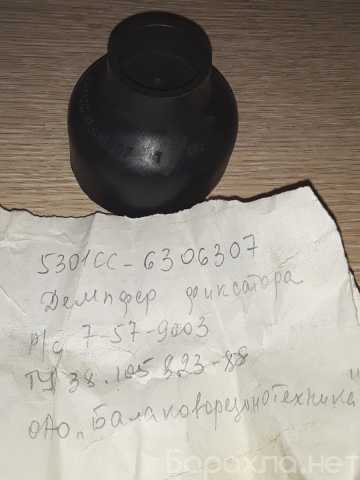 5301СС-6306307
Демпфер фиксатора
р/с 7-57-9003
ТУ 38.105823-88
ОАО „Балаковорезинотехника"
Барахла.нет